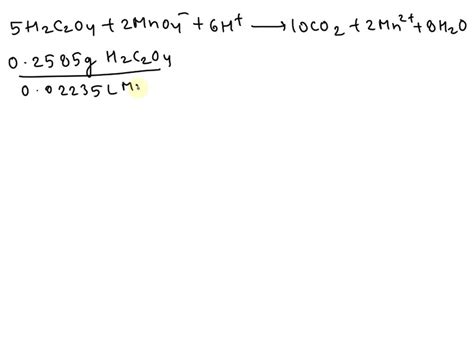 5H2C2O4 + 2MnO4⁻ + 6H⁺ ⟶ 10CO2 + 2Mn²⁺ + 8H2O
0.2585g H2C2O4
0.02235L Mn